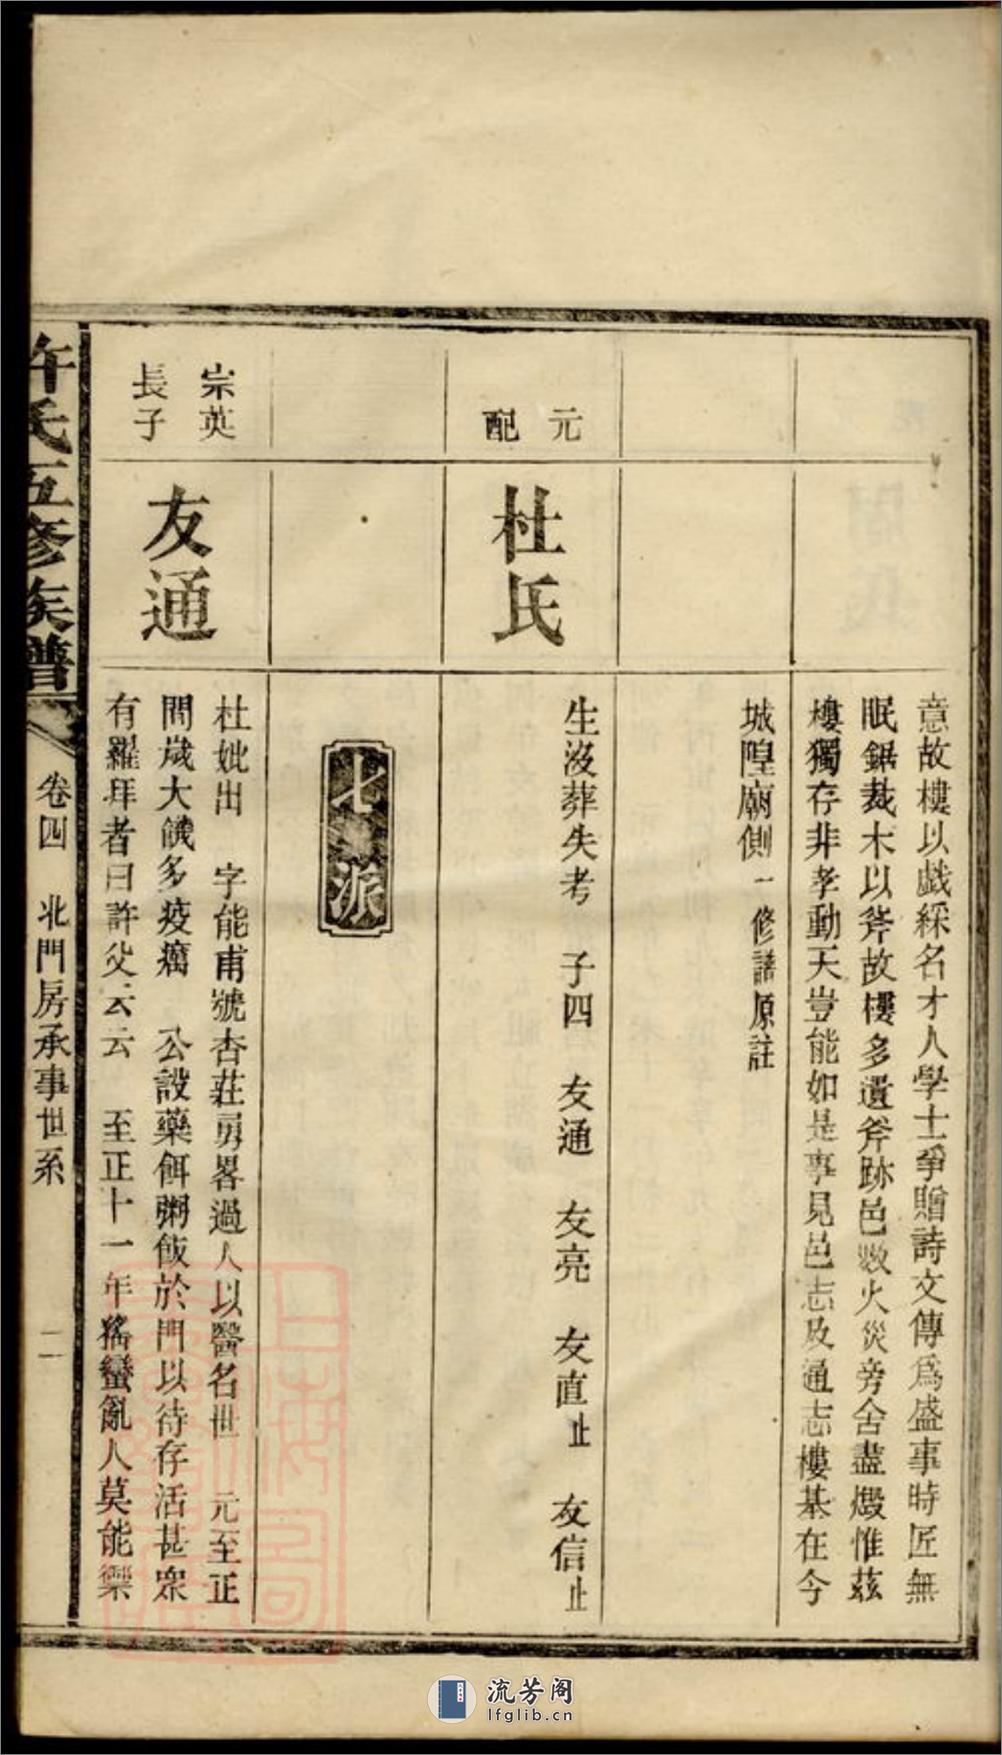 意故樓以戯綵名才人學士爭贈詩文傳爲盛事時匠無
眠鋸裁木以斧故樓多遺斧跡邑數火災旁舍盡燬惟茲
樓獨存非孝動天豈能如是事見邑志及通志樓基在今
城隍廟側一修譜原註
元配
杜氏
生沒葬失考 子四 友通 友亮 友直止 友信止
七派
宗英
長子
友通
杜妣出 字能甫號杏莊勇畧過人以醫名世 元至正
間歲大饑多疫癘 公設藥餌粥飯於門以待存活甚眾
有羅拜者曰許父云云 至正十一年猺蠻亂人莫能禦
許氏五修族譜
卷四 北門房承事世系 二
流芳阁
lfglib.cn